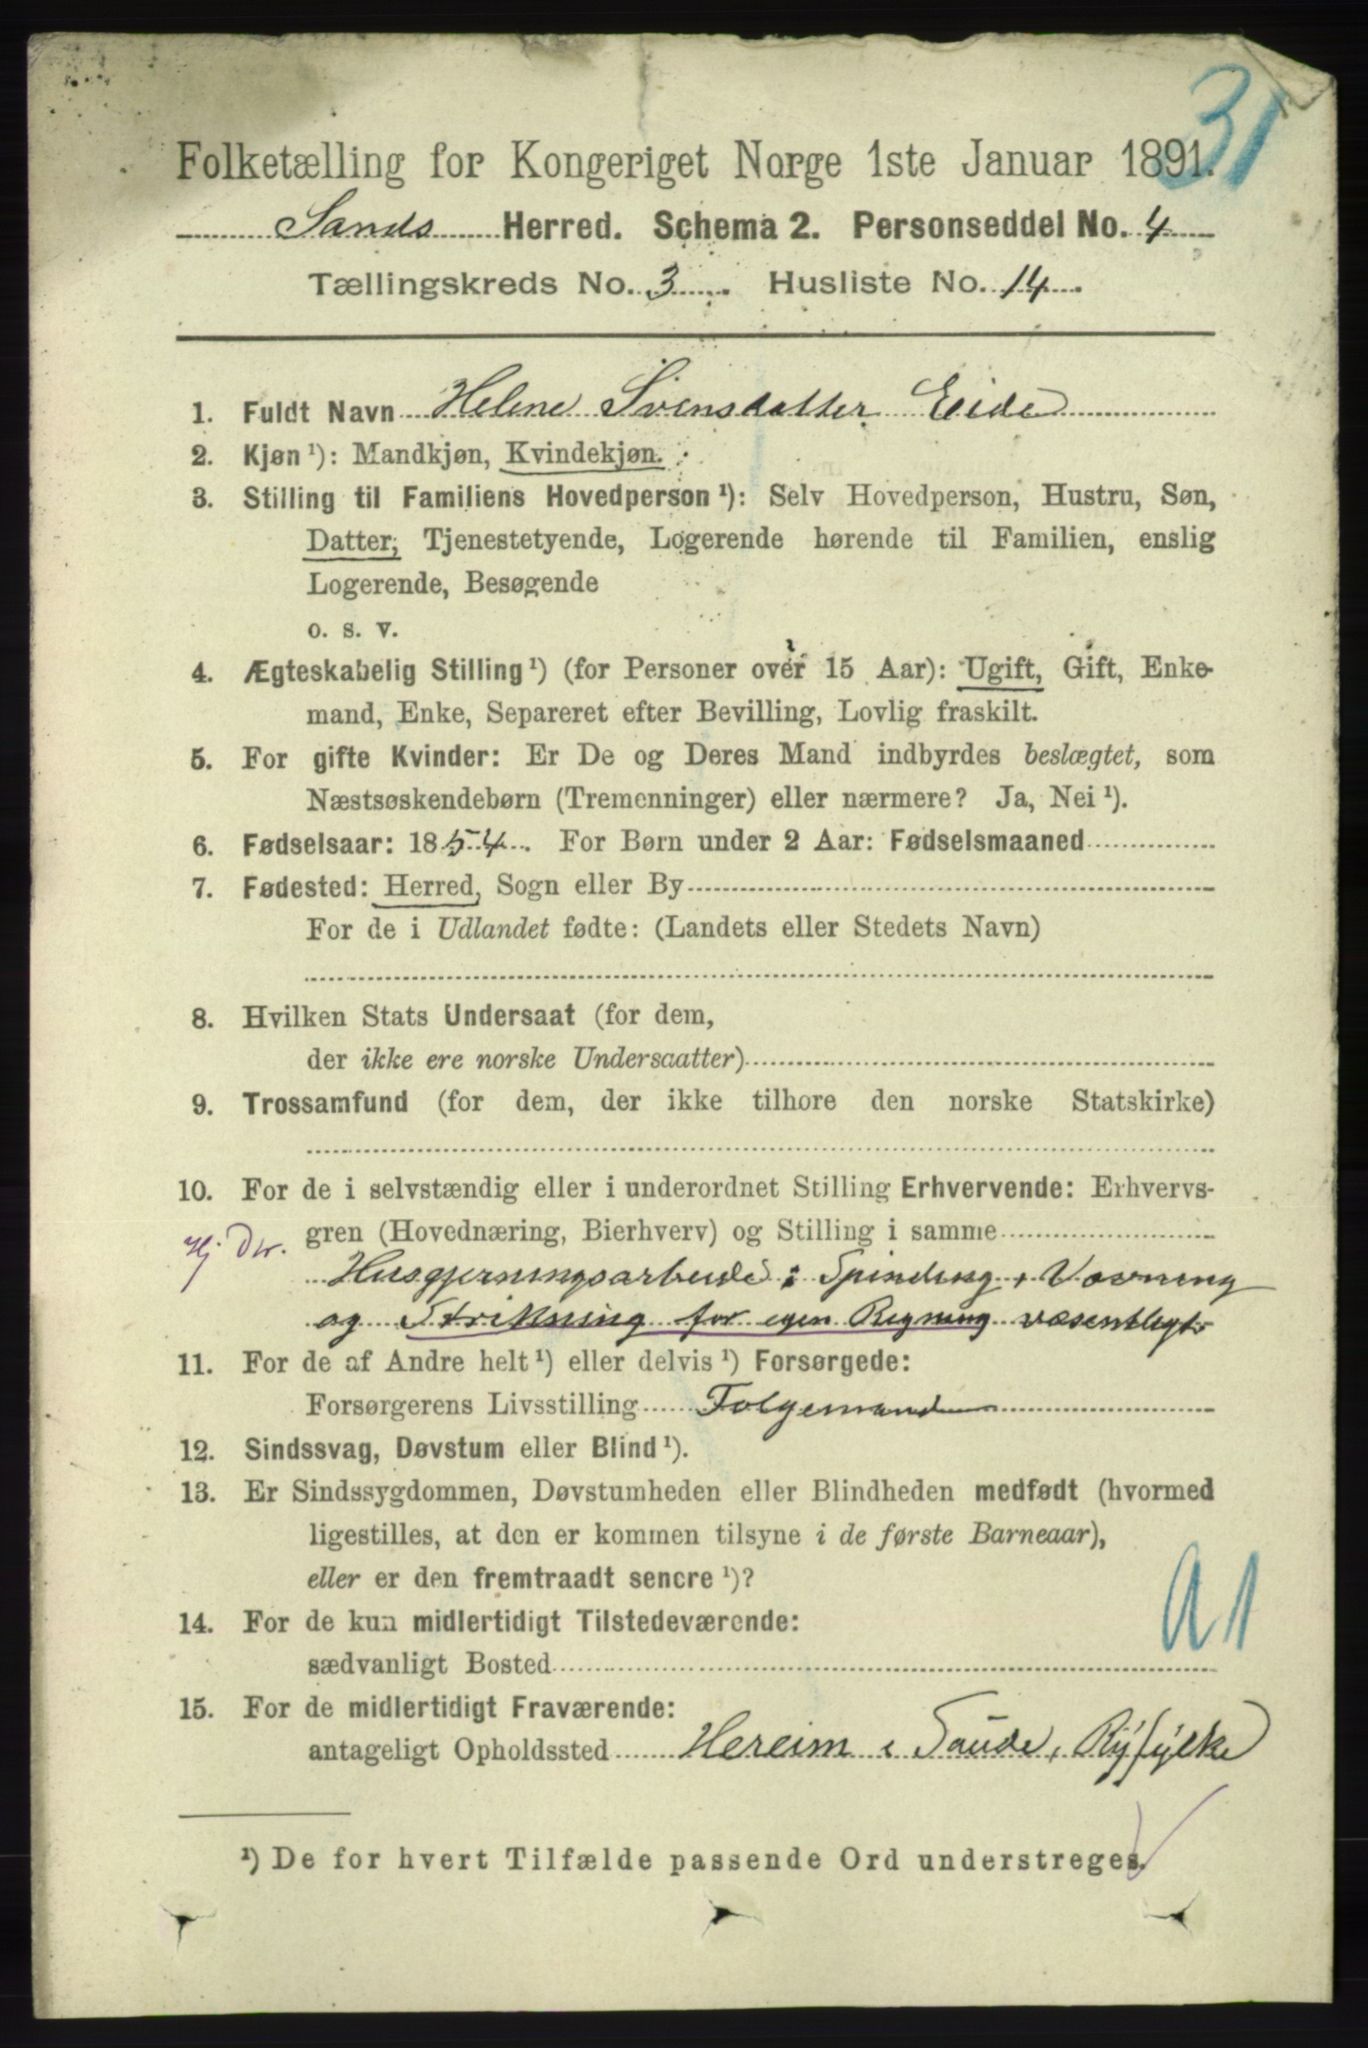 31
Folketælling for Kongeriget Norge 1ste Januar 1891.
Sands Herred. Schema 2. Personseddel No. 4
Tællingskreds No. 3. Husliste No. 14.
1. Fuldt Navn Helene Svensdatter Eide
2. Kjøn ¹): Mandkjøn, Kvindekjøn.
3. Stilling til Familiens Hovedperson ¹): Selv Hovedperson, Hustru, Søn,
Datter, Tjenestetyende, Logerende hørende til Familien, enslig
Logerende, Besøgende
o. s. v.
4. Ægteskabelig Stilling ¹) (for Personer over 15 Aar): Ugift, Gift, Enke-
mand, Enke, Separeret efter Bevilling, Lovlig fraskilt.
5. For gifte Kvinder: Er De og Deres Mand indbyrdes beslægtet, som
Næstsøskendebørn (Tremenninger) eller nærmere? Ja, Nei ¹).
6. Fødselsaar: 1854. For Børn under 2 Aar: Fødselsmaaned
7. Fødested: Herred, Sogn eller By
For de i Udlandet fødte: (Landets eller Stedets Navn)
8. Hvilken Stats Undersaat (for dem,
der ikke ere norske Undersaatter)
9. Trossamfund (for dem, der ikke tilhøre den norske Statskirke)
10. For de i selvstændig eller i underordnet Stilling Erhvervende: Erhvervs-
gren (Hovednæring, Bierhverv) og Stilling i samme
Hj. Dtr.
Husgjerningsarbeide: Spinding, Vævning
og Strikning for egen Regning væsentligt
11. For de af Andre helt ¹) eller delvis ¹) Forsørgede:
Forsørgerens Livsstilling Folgemand
12. Sindssvag, Døvstum eller Blind ¹).
13. Er Sindssygdommen, Døvstumheden eller Blindheden medfødt (hvormed
ligestilles, at den er kommen tilsyne i de første Barneaar),
eller er den fremtraadt senere ¹)?
A1
14. For de kun midlertidigt Tilstedeværende:
sædvanligt Bosted
15. For de midlertidigt Fraværende:
antageligt Opholdssted Hereim i Saude, Ryfylke
¹) De for hvert Tilfælde passende Ord understreges.